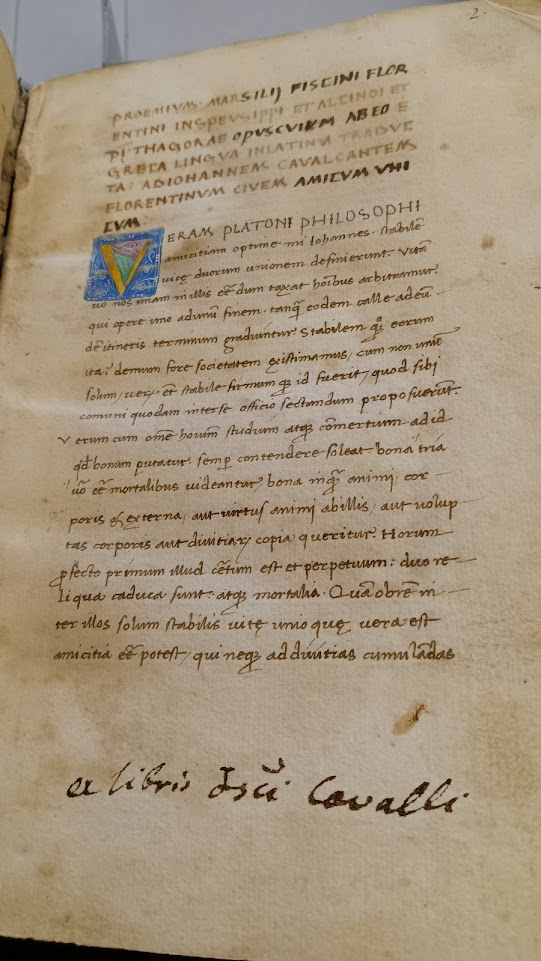 2.
PROEMIVM. MARSILIJ FISCINI FLOR
ENTINI IN SPEVSIPPI ET ALCINOI ET
PITHAGORAE OPVSCVLVM AB EO E
GRECA LINGVA IN LATINA TRADVC
TA: AD IOHANNEM CAVALCANTEM
FLORENTINVM CIVEM AMICVM VNI
CVM:
VERAM PLATONI PHILOSOPHI
amicitiam optime mi Iohannes. stabilē
uitę duorum unionem definierunt. Vitā
uō nos unam in illis eē dum taxat hoībus arbitramur.
qui opere uno ad unū finem. tanq̄ eodem calle ad eūn
dē itineris terminum gradiuntur. Stabilem qȝ eorum
ita demum fore societatem existimamus, cum non unū
solum, uerȝ et stabile firmum qȝ id fuerit, quod sibi
comuni quodam inter se officio sectandum proposuerūt.
Verum cum omē hominū studium atqȝ cōmertium ad id
qd̄ bonum putatur. semp contendere soleat bona tria
uō eē mortalibus uideantur, bona inqȝ animi, cor
poris & externa, aut uirtus animi ab illis, aut uolup
tas corporis aut diuitiarȝ copia queritur. Horum
pfecto primum illud cētum est et perpetuum: duo re
liqua caduca sunt. atqȝ mortalia. Quā obrē in
ter illos solum stabilis uitę unio quę uera est
amicitia eē potest, qui neqȝ ad diuitias cumulādas
ex libris Cavalli